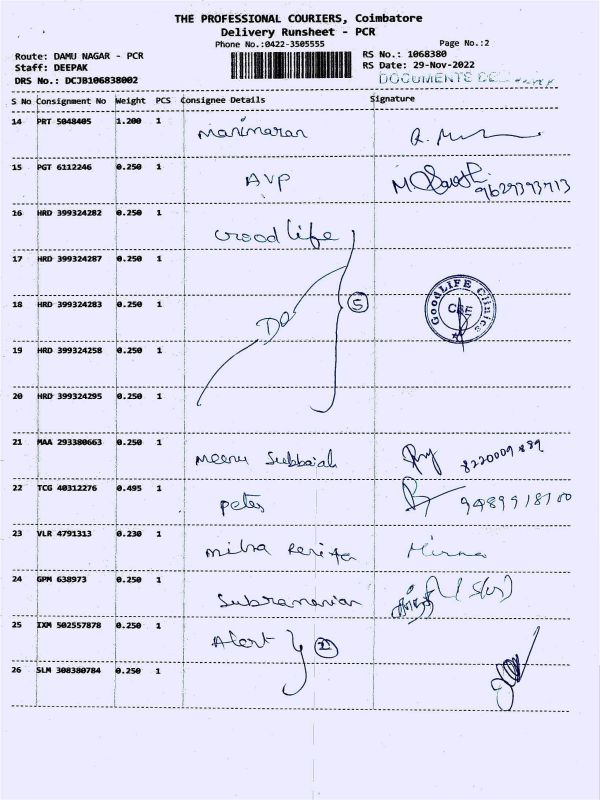 THE PROFESSIONAL COURIERS, Coimbatore
Delivery Runsheet - PCR
Phone No.:0422-3505555
Page No.:2
Route: DAMU NAGAR - PCR
RS No.: 1068380
Staff: DEEPAK
RS Date: 29-Nov-2022
DRS No.: DCJB106838002
DOCUMENTS
S No Consignment No Weight PCS Consignee Details Signature
14 PRT 5048405 1.200 1 Manimaran
15 PGT 6112246 0.250 1 AVP 9629393713
16 HRD 399324282 0.250 1 Good life
17 HRD 399324287 0.250 1
18 HRD 399324283 0.250 1 Do 5 GoodLIFE Clinics CBE
19 HRD 399324258 0.250 1
20 HRD 399324295 0.250 1
21 MAA 293380663 0.250 1 Meenu Subbaiah
22 TCG 40312276 0.495 1 Peter
23 VLR 4791313 0.230 1
24 GPM 638973 0.250 1 Subramanian
25 IXM 502557878 0.250 1 Alert 2
26 SLM 308380784 0.250 1